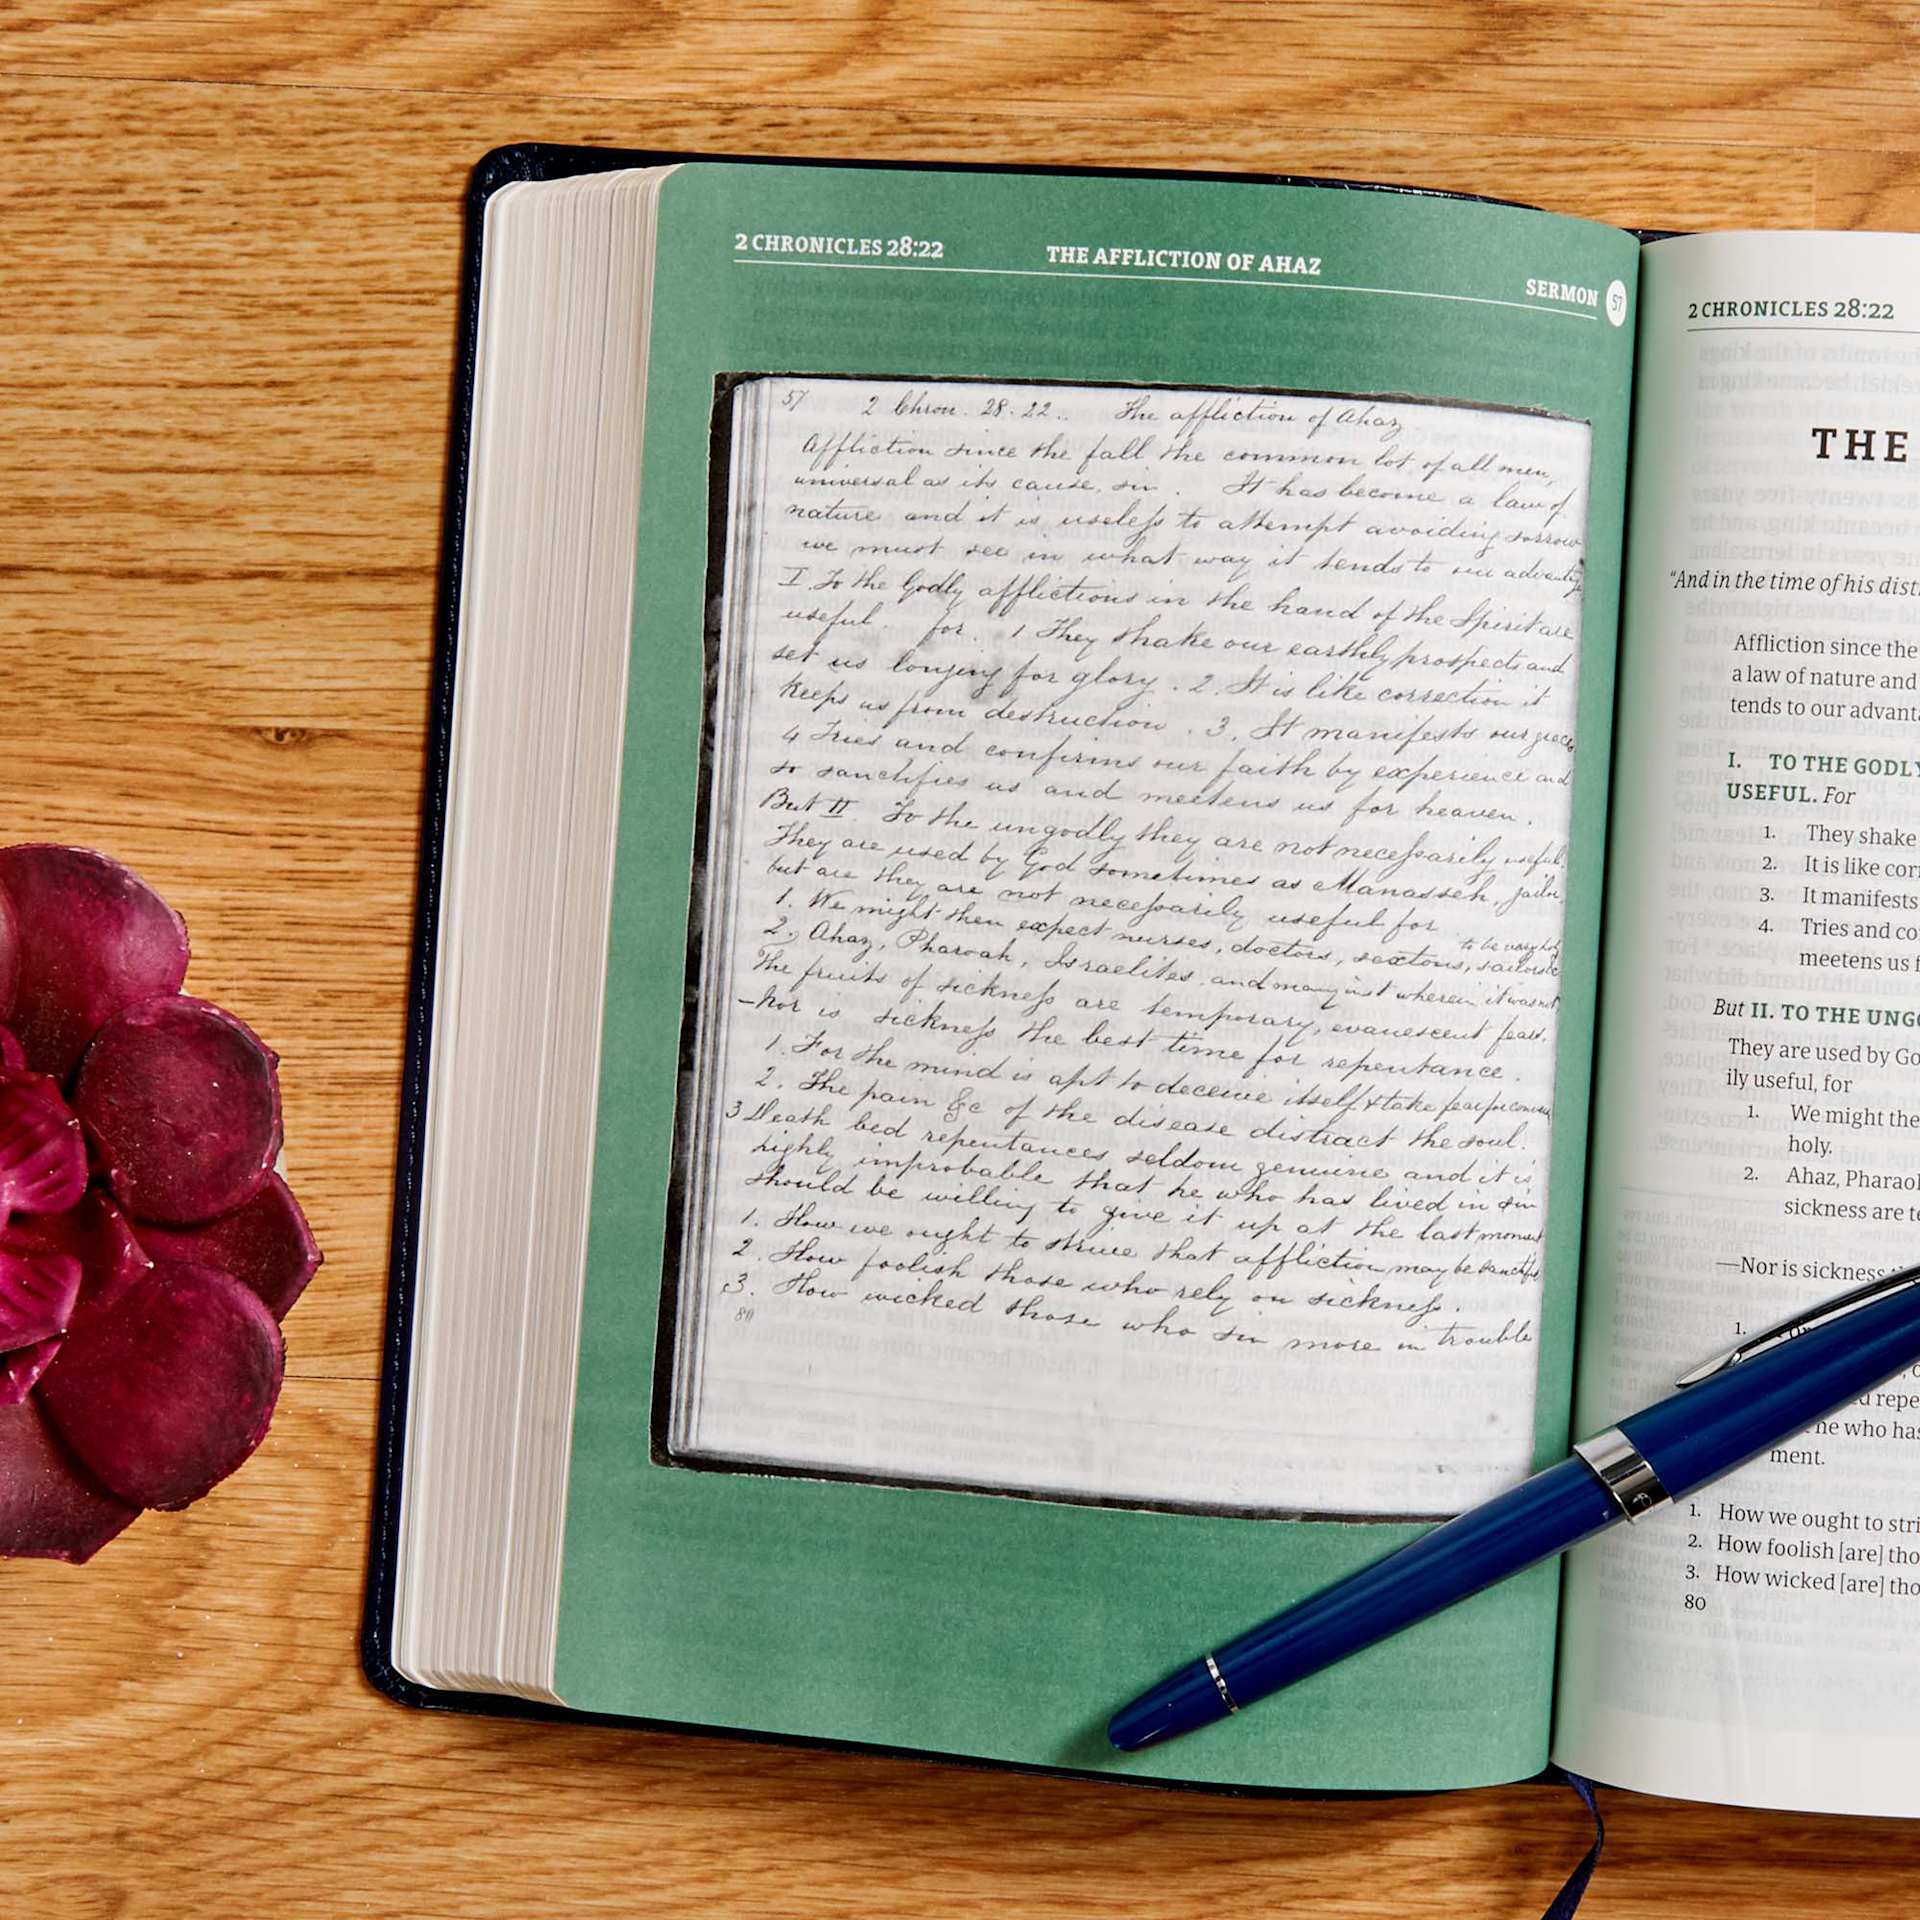 2 CHRONICLES 28:22 THE AFFLICTION OF AHAZ SERMON 57
57 2 Chron. 28. 22.. The affliction of Ahaz
Affliction since the fall the common lot of all men,
universal as its cause, sin. It has become a law of
nature and it is useless to attempt avoiding sorrow
we must see in what way it tends to our advantage
I. To the Godly afflictions in the hand of the Spirit are
useful. for. 1 They shake our earthly prospects and
set us longing for glory. 2. It is like correction it
keeps us from destruction. 3. It manifests our graces
4 Tries and confirms our faith by experience and
so sanctifies us and meetens us for heaven.
But II. To the ungodly they are not necessarily useful,
They are used by God sometimes as Manasseh, jailor,
but are they are not necessarily useful for
1. We might then expect nurses, doctors, sextons, sailors &c to be very holy
2. Ahaz, Pharoah, Israelites, and many inst wherein it was not,
The fruits of sickness are temporary, evanescent fears.
—Nor is sickness the best time for repentance.
1. For the mind is apt to deceive itself & take fear for
2. The pain &c of the disease distract the soul.
3 Death bed repentances seldom genuine and it is
highly improbable that he who has lived in sin
should be willing to give it up at the last moment
1. How we ought to strive that affliction may be sanctified
2. How foolish those who rely on sickness.
3. How wicked those who sin more in trouble
80
2 CHRONICLES 28:22
THE
"And in the time of his dist
Affliction since the
a law of nature and
tends to our advanta
I. TO THE GODLY
USEFUL. For
1. They shake
2. It is like cor
3. It manifests
4. Tries and co
meetens us f
But II. TO THE UNGO
They are used by Go
ily useful, for
1. We might the
holy.
2. Ahaz, Pharaoh
sickness are te
—Nor is sickness
1.
d repe
he who has
ment.
1. How we ought to stri
2. How foolish [are] tho
3. How wicked [are] tho
80